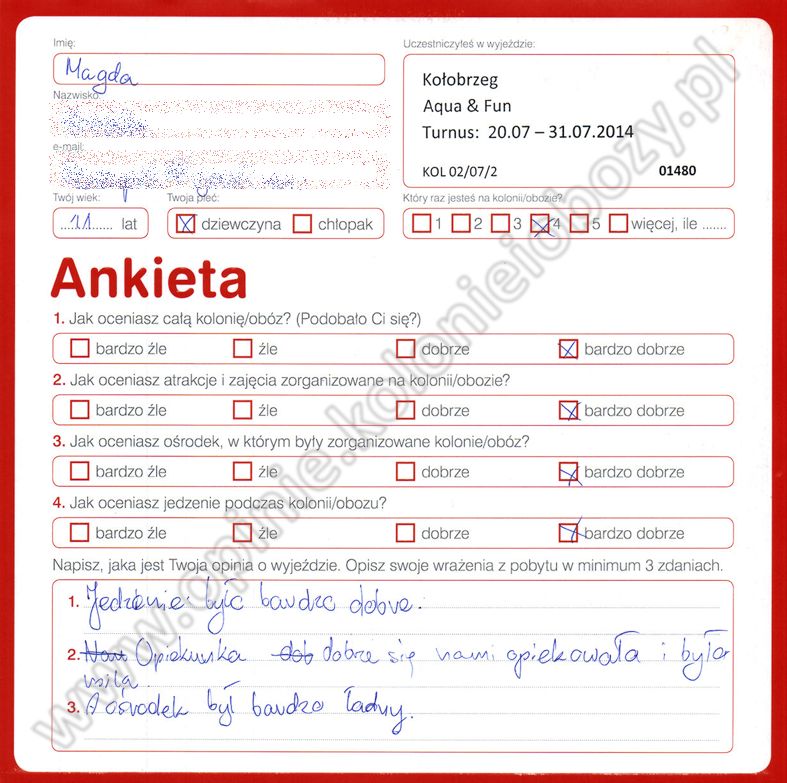 Imię:
Magda
Uczestniczyłeś w wyjeździe:
Kołobrzeg
Aqua & Fun
Turnus: 20.07 – 31.07.2014
KOL 02/07/2 01480
Nazwisko
e-mail:
Twój wiek:
11 lat
Twoja płeć:
dziewczyna chłopak
Który raz jesteś na kolonii/obozie?
1 2 3 4 5 więcej, ile .......
Ankieta
1. Jak oceniasz całą kolonię/obóz? (Podobało Ci się?)
bardzo źle źle dobrze bardzo dobrze
2. Jak oceniasz atrakcje i zajęcia zorganizowane na kolonii/obozie?
bardzo źle źle dobrze bardzo dobrze
3. Jak oceniasz ośrodek, w którym były zorganizowane kolonie/obóz?
bardzo źle źle dobrze bardzo dobrze
4. Jak oceniasz jedzenie podczas kolonii/obozu?
bardzo źle źle dobrze bardzo dobrze
Napisz, jaka jest Twoja opinia o wyjeździe. Opisz swoje wrażenia z pobytu w minimum 3 zdaniach.
1. Jedzenie było bardzo dobre.
2. Opiekunka dobrze się nami opiekowała i była
miła.
3. A ośrodek był bardzo ładny.
www.opinie.kolonieiobozy.pl